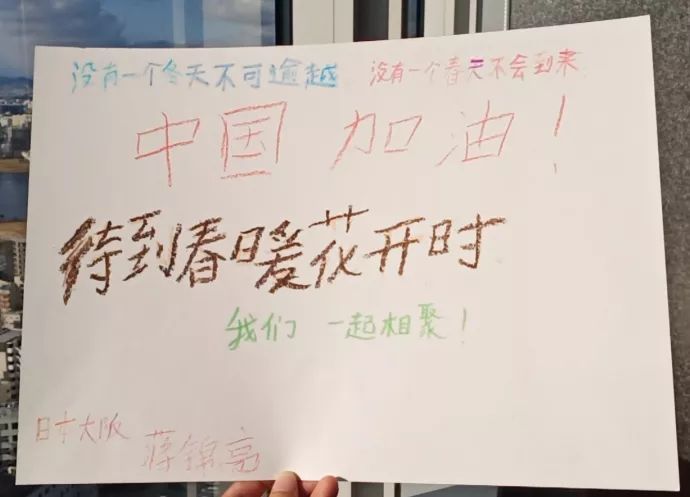 没有一个冬天不可逾越 没有一个春天不会到来
中国 加油！
待到春暖花开时
我们 一起相聚！
日本大阪 蒋锦亮